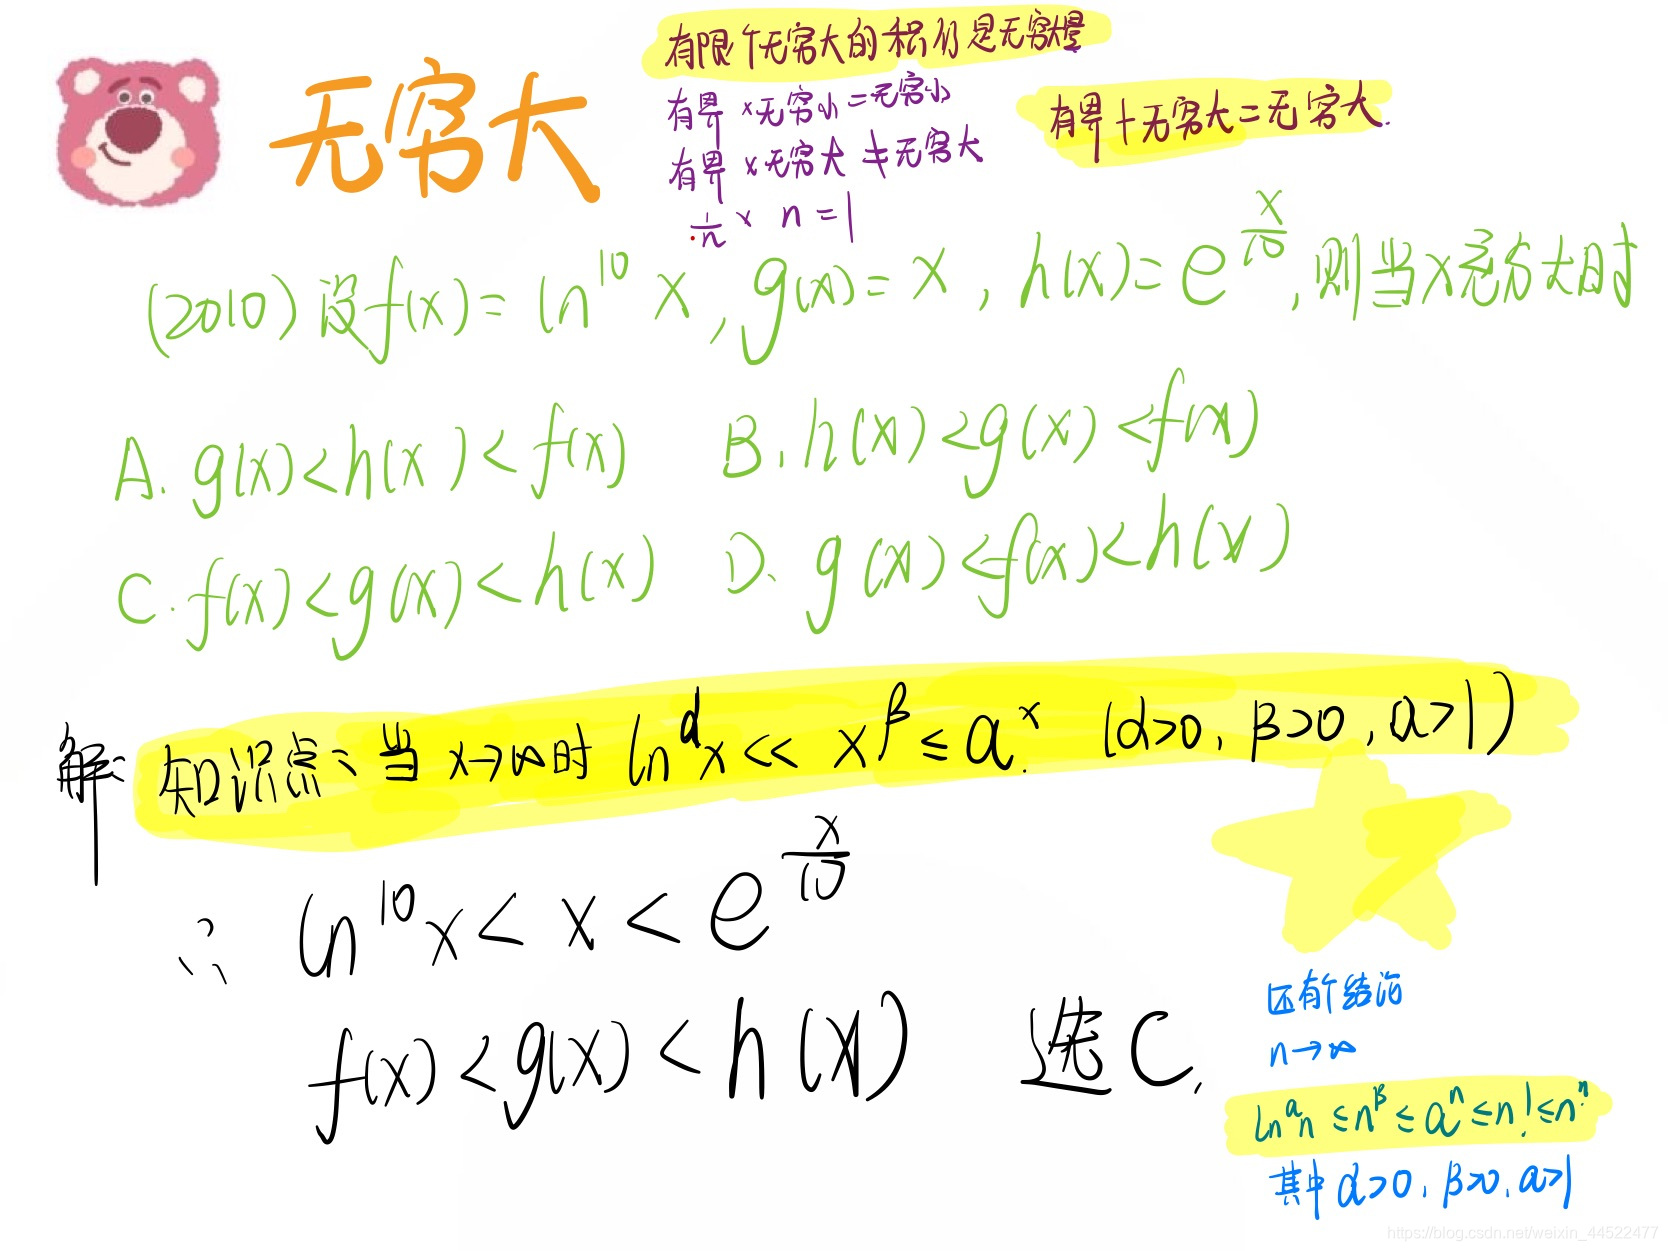 无穷大
有限个无穷大的积仍是无穷大量
有界×无穷小=无穷小
有界×无穷大≠无穷大
1/n × n = 1
有界+无穷大=无穷大.
(2010)设f(x)=ln¹⁰x, g(x)=x, h(x)=e^(x/10), 则当x充分大时
A. g(x)<h(x)<f(x) B. h(x)<g(x)<f(x)
C. f(x)<g(x)<h(x) D. g(x)<f(x)<h(x)
解: 知识点: 当x→∞时 ln^α x << x^β ≤ a^x (α>0, β>0, a>1)
∴ ln¹⁰x < x < e^(x/10)
f(x)<g(x)<h(x) 选C.
还有个结论
n→∞
ln^α n ≤ n^β ≤ a^n ≤ n! ≤ n^n
其中 α>0, β>0, a>1
https://blog.csdn.net/weixin_44522477